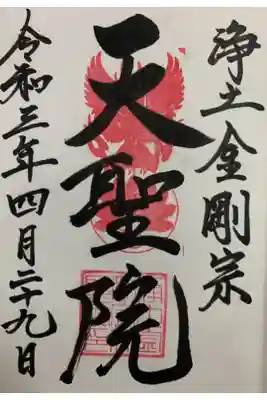 浄土金剛宗
天聖院
令和三年四月二十九日